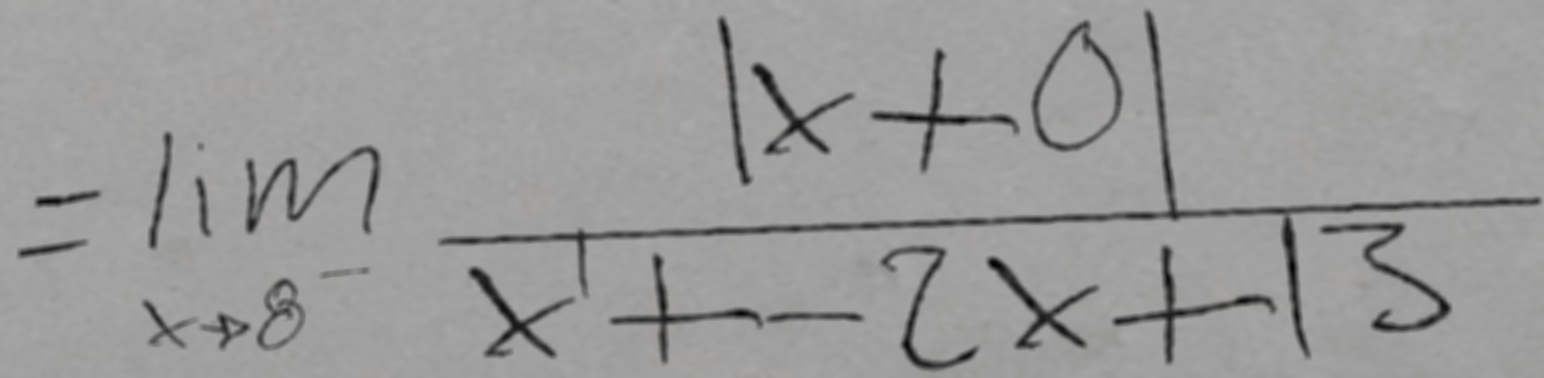 = lim x→8⁻ |x+0| / x¹+-2x+13